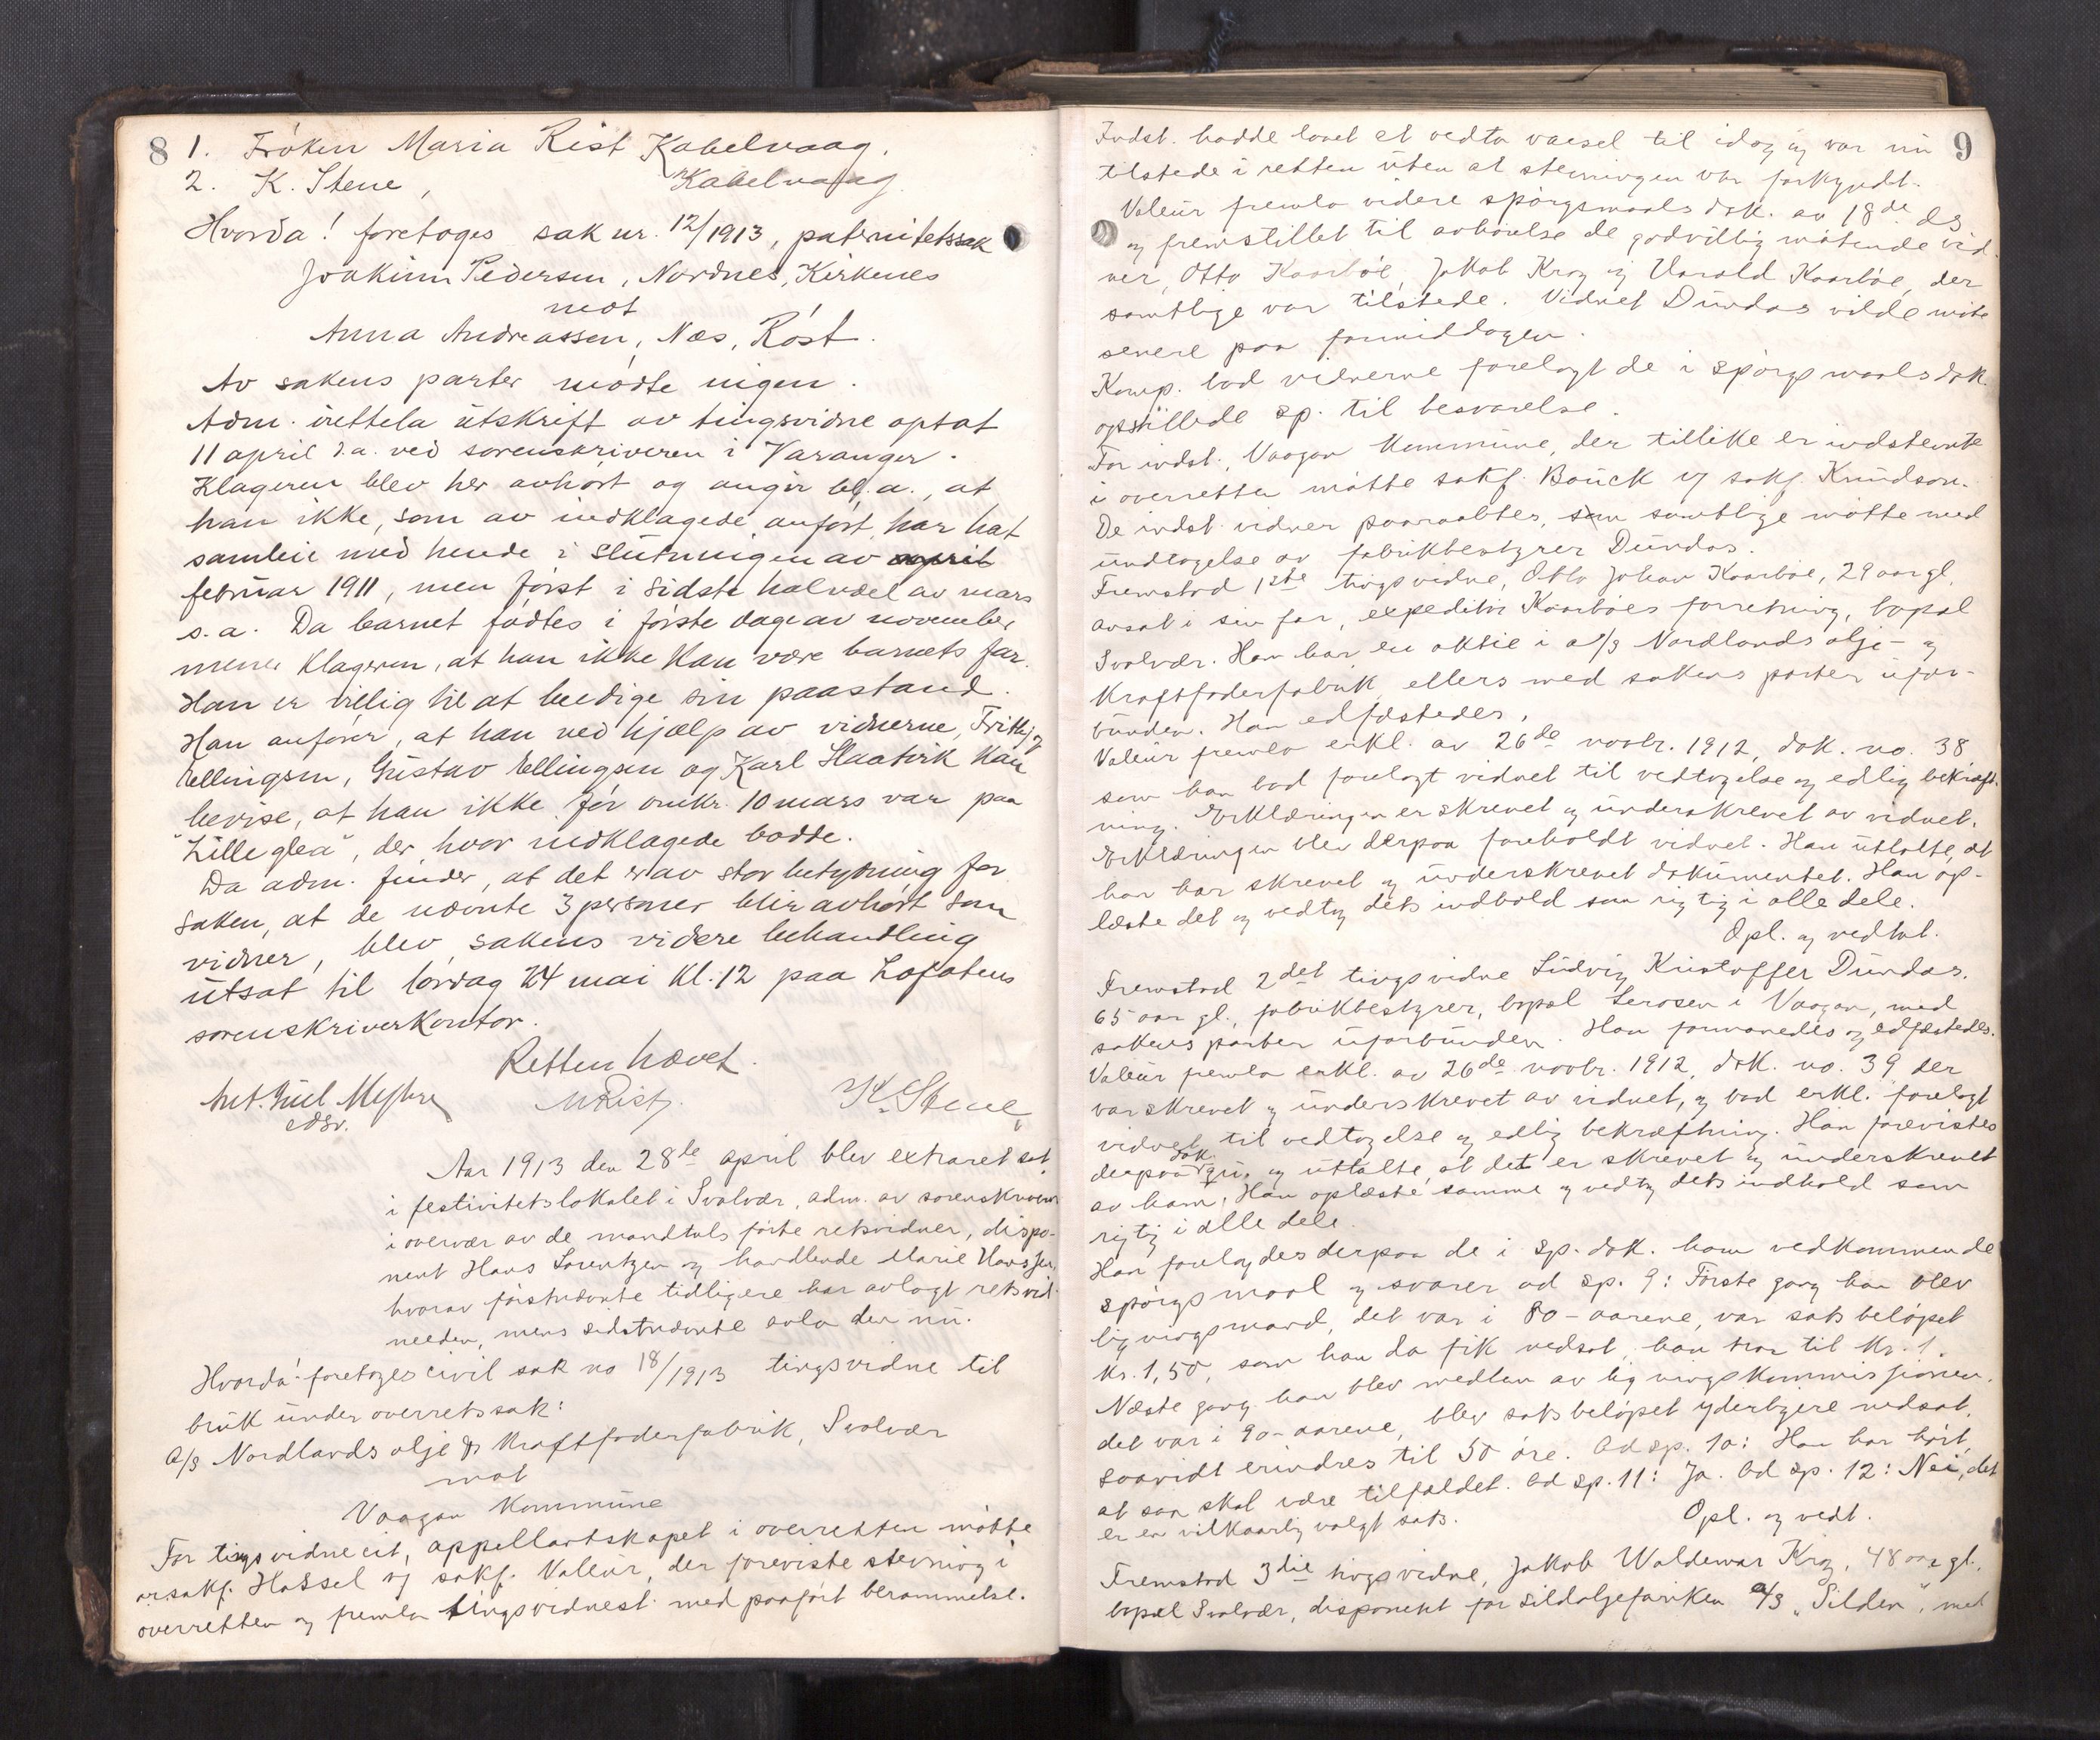 8
1. Frøken Maria Rist Kabelvaag.
2. K. Stene, Kabelvaag
Hvorda! foretoges sak nr. 12/1913, paternitetssak
Joakim Pedersen, Nordnes, Kirkenes
mot
Anna Andreassen, Næs, Røst.
Av sakens parter mødte ingen.
Adm. irettela utskrift av tingsvidne optat
11 april d.a. ved sorenskriveren i Varanger.
Klageren blev her avhørt og angir bl.a., at
han ikke, som av indklagede anført, har hat
samleie med hende i slutningen av april
februar 1911, men først i sidste halvdel av mars
s.a. Da barnet fødtes i første dage av november
mener klageren, at han ikke kan være barnets far.
Han er villig til at beedige sin paastand.
Han anfører, at han ved hjælp av vidnerne, Frithjof
Ellingsen, Gustav Ellingsen og Karl Haatvik kan
bevise, at han ikke før omkr. 10 mars var paa
"Lille glea", der hvor indklagede bodde.
Da adm. finder, at det er av stor betydning for
saken, at de nævnte 3 personer blir avhørt som
vidner, blev sakens videre behandling
utsat til lørdag 24 mai kl. 12 paa Lofotens
sorenskriverkontor.
Retten hævet.
MRist. K. Stene
edsv.
Aar 1913 den 28de april blev extraret sat
i festivitetslokalet i Svolvær, adm. av sorenskriveren
i overvær av de mandtals førte retsvidner, dispo-
nent Hans Lorentzen og handlende Marie Hanssen,
hvorav førstnævnte tidligere har avlagt retsvid-
needen, mens sidstnævnte avla den nu.
Hvorda! foretoges civil sak no 18/1913 tingsvidne til
bruk under overretssak:
A/S Nordlands olje & kraftfoderfabrik, Svolvær
mot
Vaagan Kommune
For tingsvidneeit, appellantskapet i overretten møtte
orsakf. Hassel og sakf. Valeur, der foreviste stevning i
overretten og fremla tingsvidnest. med paaført berammelse.
9
Indst. hadde lovet at vedta varsel til idag og var nu
tilstede i retten uten at stevningen var forkyndt.
Valeur fremla videre spørgsmaalsdok. av 18de ds
og fremstillet til avhørelse de godvillig møtende vid-
ner, Otto Kaarbøe, Jakob Krog og Harald Kaarbøe, der
samtlige var tilstede. Vidnet Dundas vilde møte
senere paa formiddagen.
Komp. bad vidnerne forelagt de i spørgsmaalsdok.
opstillede sp. til besvarelse.
For indst., Vaagan Kommune, der tillike er indstevnte
i overretten møtte sakf. Bauck og sakf. Knudson.
De indst. vidner paaraabtes, som samtlige møtte med
undtagelse av fabrikbestyrer Dundas.
Fremstod 1ste tingsvidne, Otto Johan Kaarbøe, 29 aar gl.
ansat i sin far, expeditør Kaarbøes forretning, bopæl
Svolvær. Han har en aktie i a/s Nordlands olje- og
Kraftfoderfabrik, ellers med sakens parter ufor-
bunden. Han edfæstedes.
Valeur fremla erkl. av 26de novbr. 1912, dok. no. 38
som han bad forelagt vidnet til vedtagelse og edlig bekræft-
ning. Erklæringen er skrevet og underskrevet av vidnet.
Erklæringen blev derpaa foreholdt vidnet. Han uttalte, at
han har skrevet og underskrevet dokumentet. Han op-
læste det og vedtog dets indhold som rigtig i alle dele.
Opl. og vedtat.
Fremstod 2det tingsvidne Ludvig Kristoffer Dundas,
65 aar gl., fabrikbestyrer, bopæl Lerosen i Vaagan, med
sakens parter uforbunden. Han formanedes og edfæstedes.
Valeur fremla erkl. av 26de novbr. 1912, dok. no. 39 der
var skrevet og underskrevet av vidnet, og bad erkl. forelagt
vidnet til vedtagelse og edlig bekræftning. Han forevistes
derpaa dok. og uttalte, at det er skrevet og underskrevet
av ham. Han oplæste samme og vedtog dets indhold som
rigtig i alle dele.
Han forelagdes derpaa de i sp.dok. ham vedkommende
spørgsmaal og svarer ad sp. 9: Første gang han blev
ligningsmand, det var i 80-aarene, var satsbeløpet
kr. 1,50, som han da fik nedsat, han tror til kr. 1.
Næste gang han blev medlem av ligningskommissjonen,
det var i 90-aarene, blev satsbeløpet yderligere nedsat
saavidt erindres til 50 øre. Ad sp. 10: Han har hørt
at saa skal være tilfældet. Ad sp. 11: Ja. Ad sp. 12: Nei, det
er en vilkaarlig valgt sats.
Opl. og vedt.
Fremstod 3die tingsvidne, Jakob Waldemar Krog, 48 aar gl.,
bopæl Svolvær, disponent for sildoljefariken A/S "Silden", med